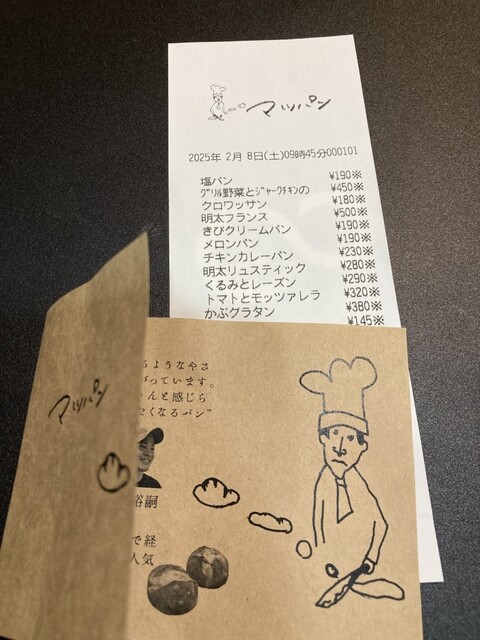 マツパン
2025年 2月 8日(土)09時45分000101
塩パン ¥190※
ｸﾞﾘﾙ野菜とｼﾞｬｰｸﾁｷﾝの ¥450※
クロワッサン ¥180※
明太フランス ¥500※
きびクリームパン ¥190※
メロンパン ¥190※
チキンカレーパン ¥230※
明太リュスティック ¥280※
くるみとレーズン ¥290※
トマトとモッツァレラ ¥320※
かぶグラタン ¥380※
¥145※
マツパン
るようなやさ
がっています。
んと感じら
たくなるパン”
裕嗣
で経
人気